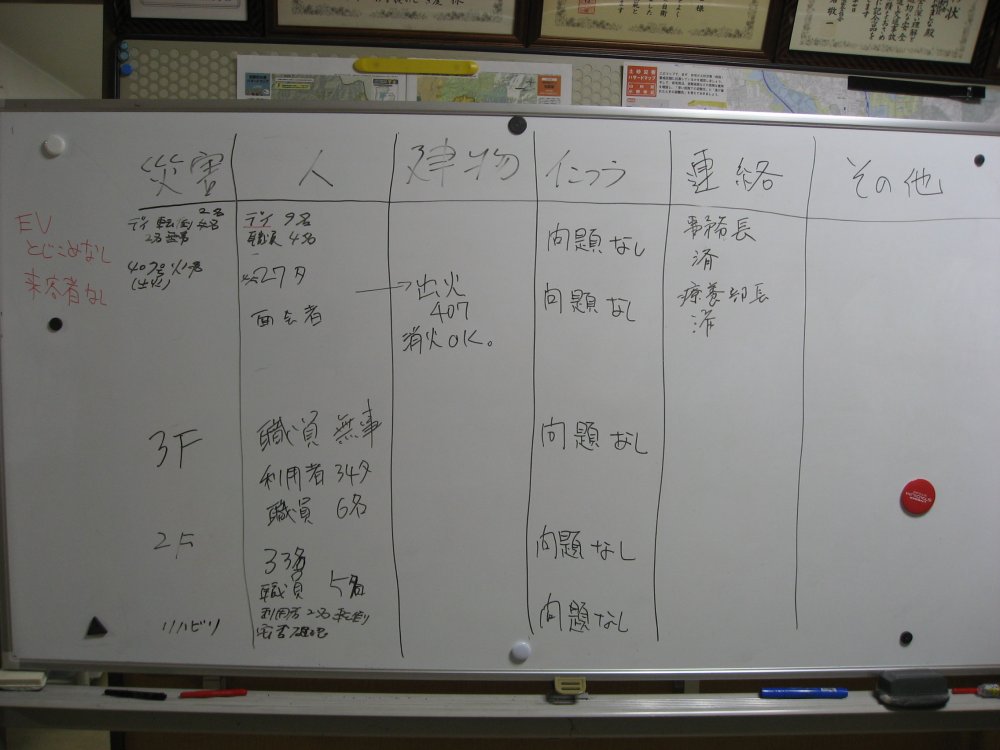 災害 人 建物 インフラ 連絡 その他
EV
とじこめなし
来容者なし
デイ 転倒 2名
2名無事
407号
(出火)
デイ 9名
職員 4名
27名
面会者
→出火
407
消火OK。
問題なし
問題なし
事務長
済
療養部長
済
3F 職員 無事 問題なし
利用者 34名
職員 6名
2F 33名 問題なし
職員 5名
リハビリ 利用者2名 問題なし
土砂災害
ハザードマップ